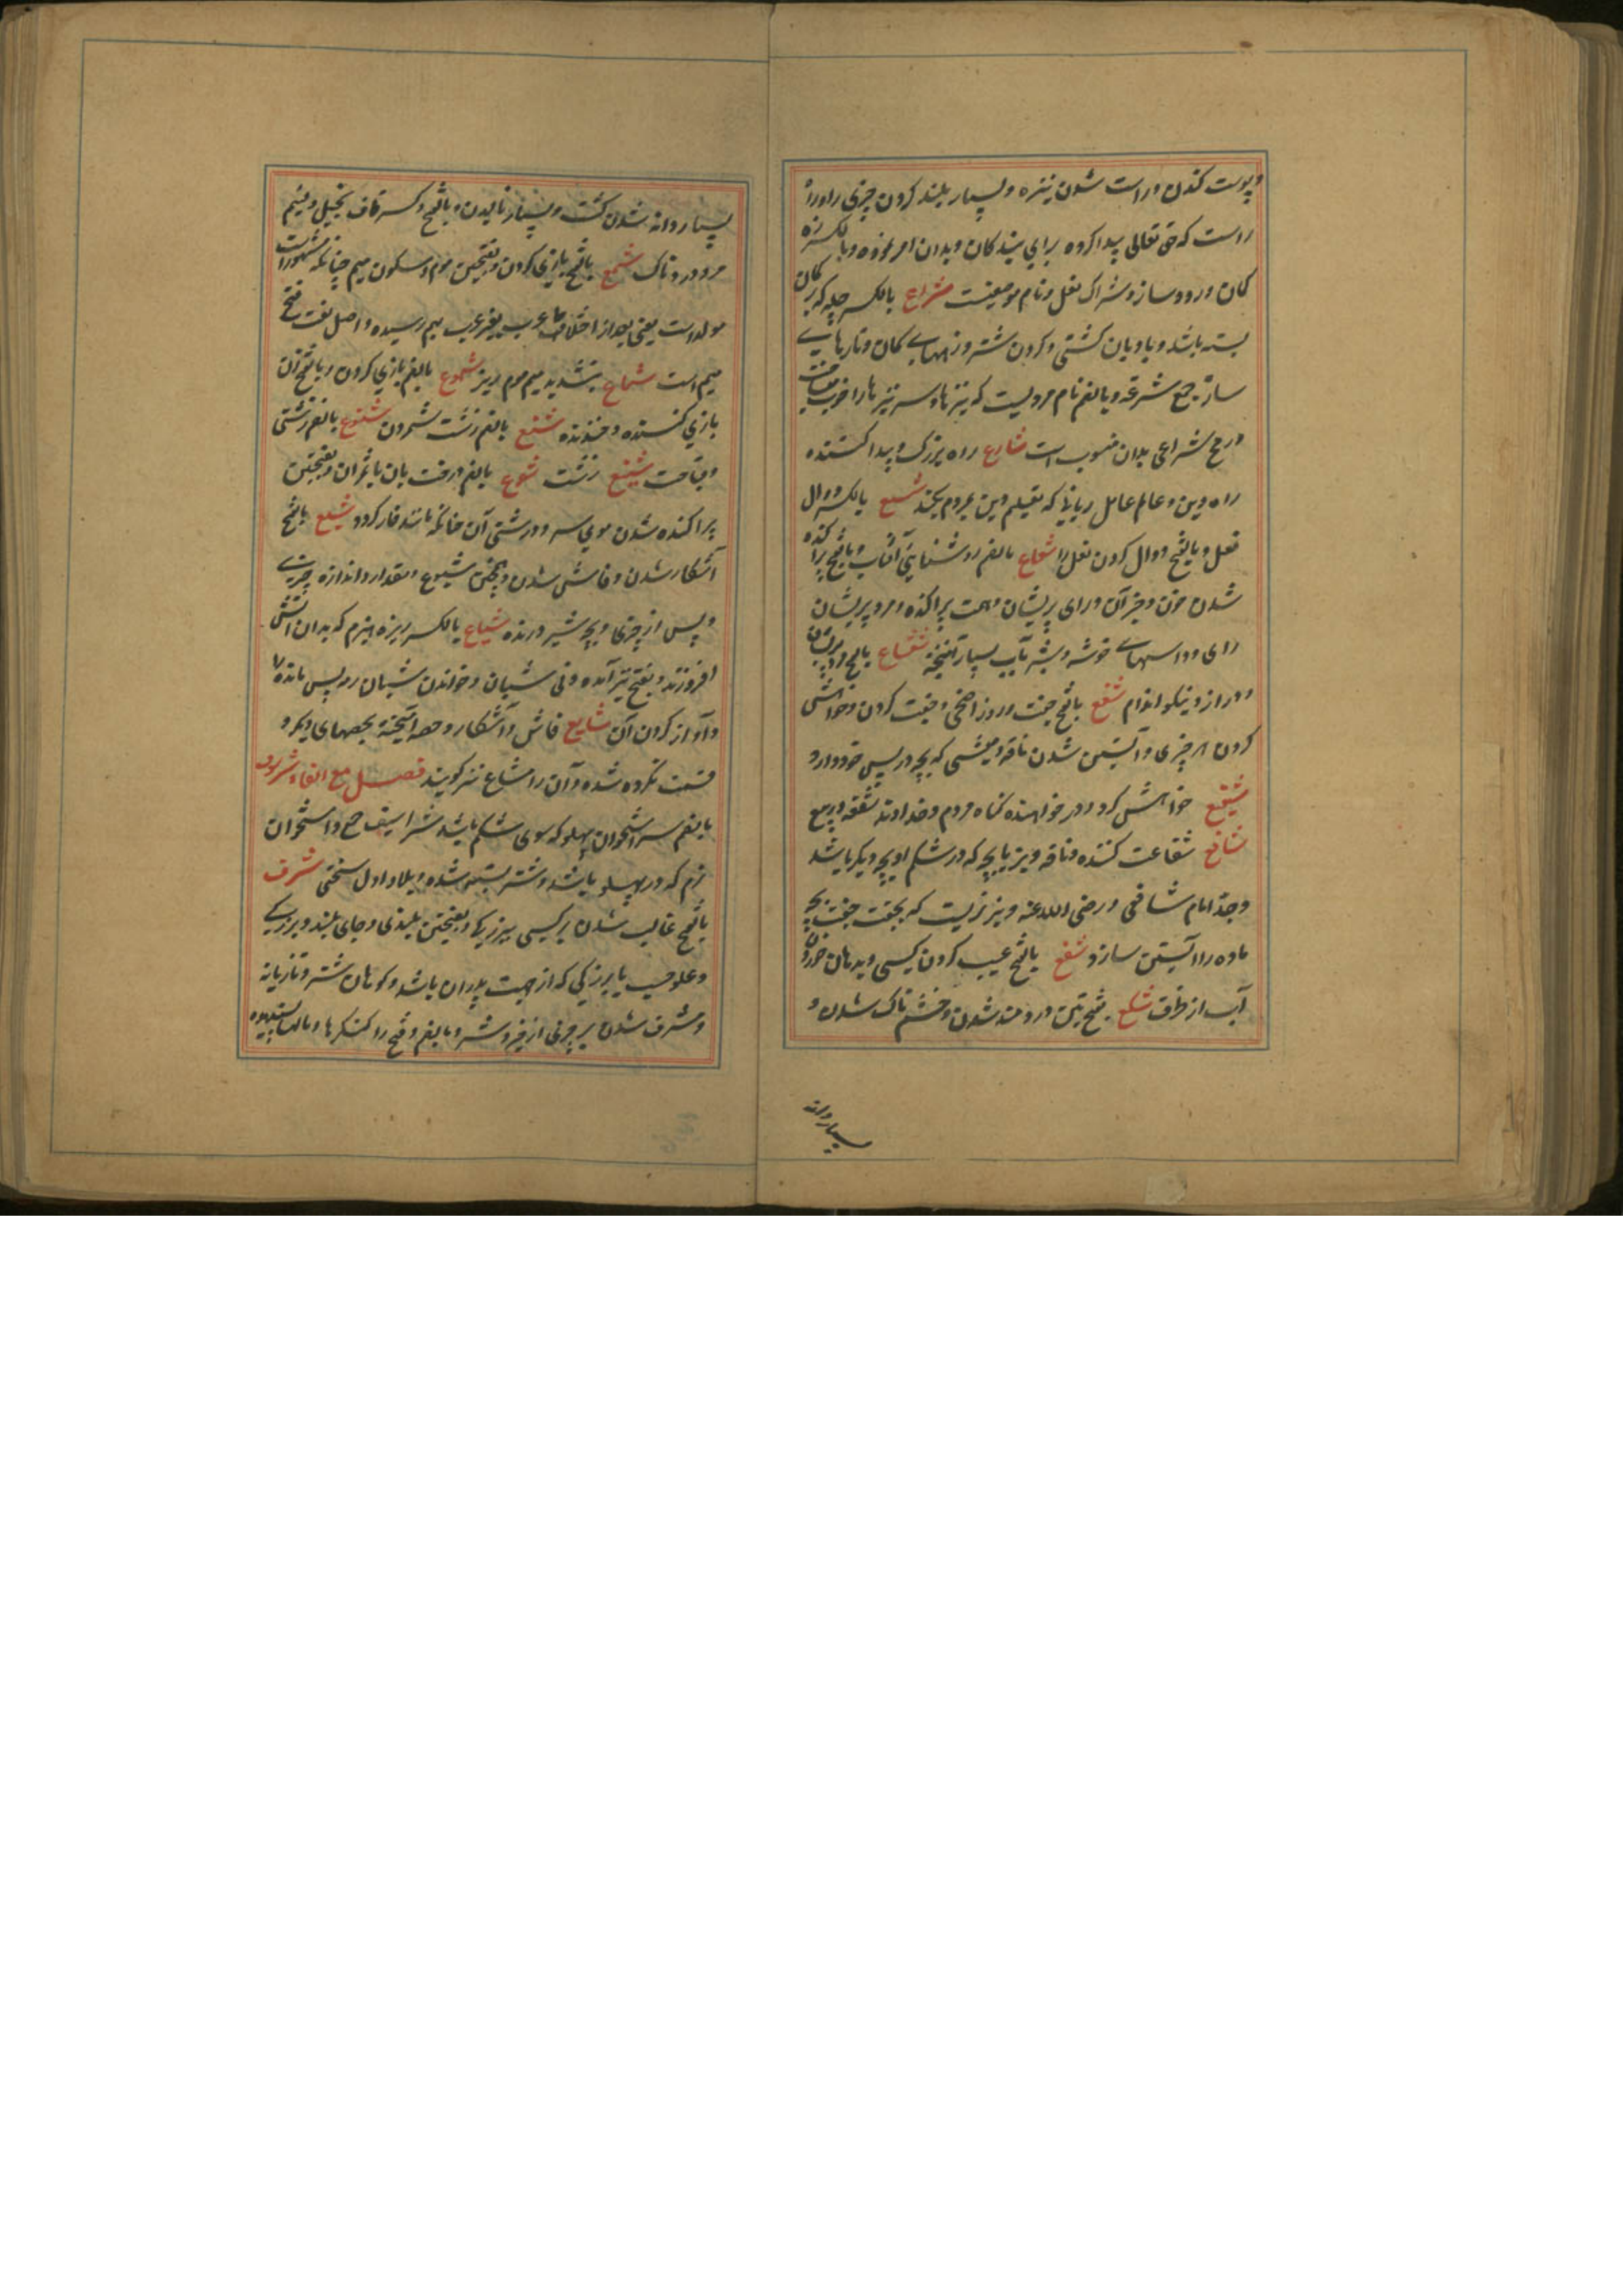 وپوست کندن وراست شدن نیزه وبسیار بلند کردن چیزی را وراه
راست که حق تعالی پیدا کرده برای بندکان وبدان امر نموده وبالکسر زه
کمان ورود ساز وشراک نعل ونام موضعیست شراع بالکسر چله که بر کمان
بسته باشد وبادبان کشتی وکردن شتر وزههای کمان وتارهای
ساز جمع شرعة وبالضم نام مردیست که نیزها وسر نیزها را خوب میساخت
ورمح شراعی بدان منسوب است شارع راه بزرک وپیدا کننده
راه دین وعالم عامل ربانی که تعلیم دین بمردم بکند شسع بالکسر دوال
نعل وبالفتح دوال کردن نعل را شعاع بالضم روشنایی آفتاب وبالفتح پراکنده
شدن خون وجز آن ورای پریشان وهمت پراکنده ومرد پریشان
رای وداسهای خوشه وشیر بآب بسیار آمیخته شعشاع بالفتح
ودراز ونیکو اندام شفع بالفتح جفت وروز اضحی وجفت کردن وخواهش
کردن هر چیزی وآبستن شدن ناقه ومیشی که بچه در پس خود دارد
شفیع خواهش کر ودر خواهنده کناه مردم وخداوند شفعه در بیع
شافع شفاعت کننده وناقه وبز بابچه که در شکم او بچه دیکر باشد
وجد امام شافعی رضی الله عنه وبز نریست که بجفت جفت بچه
ماده را آبستن سازد شقع بالفتح عیب کردن کسی وبدهان خوردن
آب از ظرف شکع بفتحتین دردمند شدن وخشم ناک شدن و
بسیار دانه
بسیار دانه شدن کشت وبسیار نالیدن وبالفتح وکسر کاف بخیل ولئیم
ومرد دردناک شمع بالفتح بازی کردن وبفتحتین موم وسکون میم چنانکه مشهور است
مولد است یعنی بعد از اختلاط عرب بغیر عرب بهم رسیده واصل لغت فتح
میم است شماع بتشدید میم موم ریز شموع بالضم بازی کردن وبالفتح زن
بازی کننده وخندنده شنع بالضم زشت شمردن شنوع بالضم زشتی
وقباحت شنیع زشت شوع بالضم درخت بان یا ثمر آن وبفتحتین
پراکنده شدن موی سر ودرشتی آن چنانکه مانند خار کردد شیع بالفتح
آشکار شدن وفاش شدن وهمچنین شیوع ومقدار واندازه چیزی
وپس از چیزی وبچه شیر درنده شیاع بالکسر ریزه هیزم که بدان آتش
افروزند وبفتح نیز آمده ونی شبان وخواندن شبان رمه پس مانده را
وآواز کردن آن شایع فاش وآشکار وحصه آمیخته بحصهای دیکر و
قسمت نکرده شده وآن را مشاع نیز کویند فصل مع الفاء شرسوف
بالضم سر استخوان پهلو که سوی شکم باشد شراسیف جمع واستخوان
نرم که در پهلو باشد وشتر بسته شده وبلا واول سختی شرف
بالفتح غالب شدن بر کسی ببزرکی وبفتحتین بلندی وجای بلند وبزرکی
وعلو حسب یا بزرکی که از جهت پدران باشد وکوهان شتر وتازیانه
ومشرف شدن بر چیزی از خیر وشر وبالضم وفتح را کنکرها ومالهای پسندیده